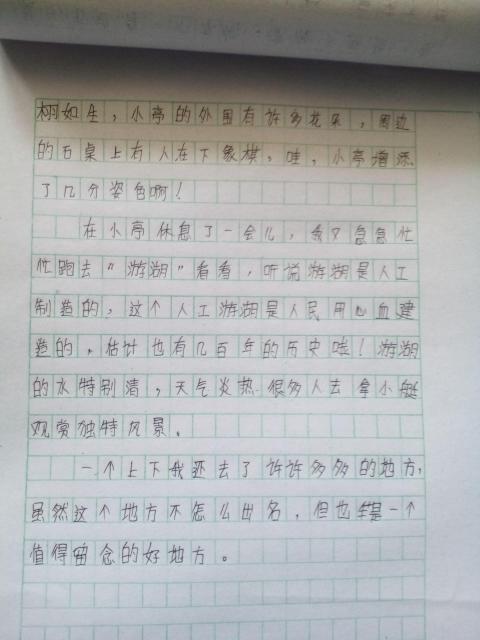 栩如生，小亭的外围有许多花朵，周边
的石桌上有人在下象棋，哇，小亭增添
了几分姿色啊！
在小亭休息了一会儿，我又急急忙
忙跑去“游湖”看看，听说游湖是人工
制造的，这个人工游湖是人民用心血建
造的，估计也有几百年的历史哇！游湖
的水特别清，天气炎热 很多人去拿小艇
观赏独特风景。
一个上下我还去了许许多多的地方，
虽然这个地方不怎么出名，但也一个
值得念的好地方。